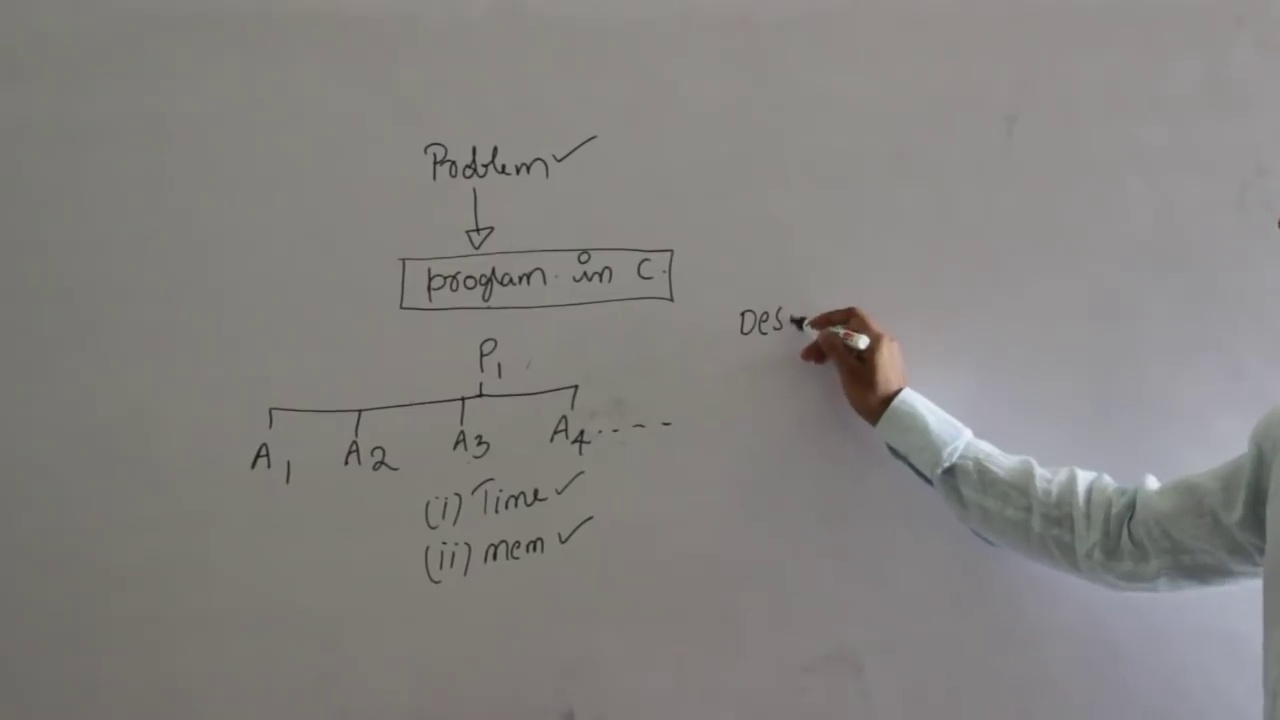 Problem ✓
program in C.
P1
A1 A2 A3 A4.....
(i) Time ✓
(ii) mem ✓
Des